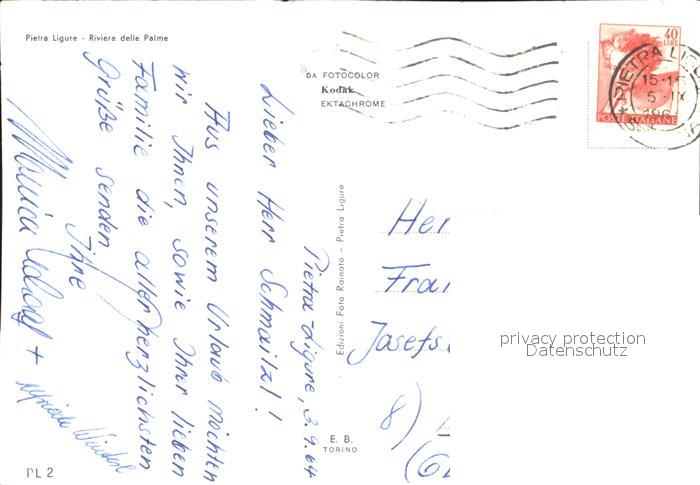 Pietra Ligure - Riviera delle Palme
DA FOTOCOLOR
Kodak
EKTACHROME
40
LIRE
POSTE ITALIANE
PIETRA LIG
15-1
5 · IX
196
Pietra-Ligure, 3.9.64
Lieber Herr Schmailzl!
Aus unserem Urlaub möchten
wir Ihnen, sowie Ihrer lieben
Familie die allerherzlichsten
Grüße senden
Ihre
Monica
+
Edizioni Foto Rainato - Pietra Ligure
E. B.
TORINO
PL 2
Her
Fra
Josefs
8)
(6
privacy protection
Datenschutz